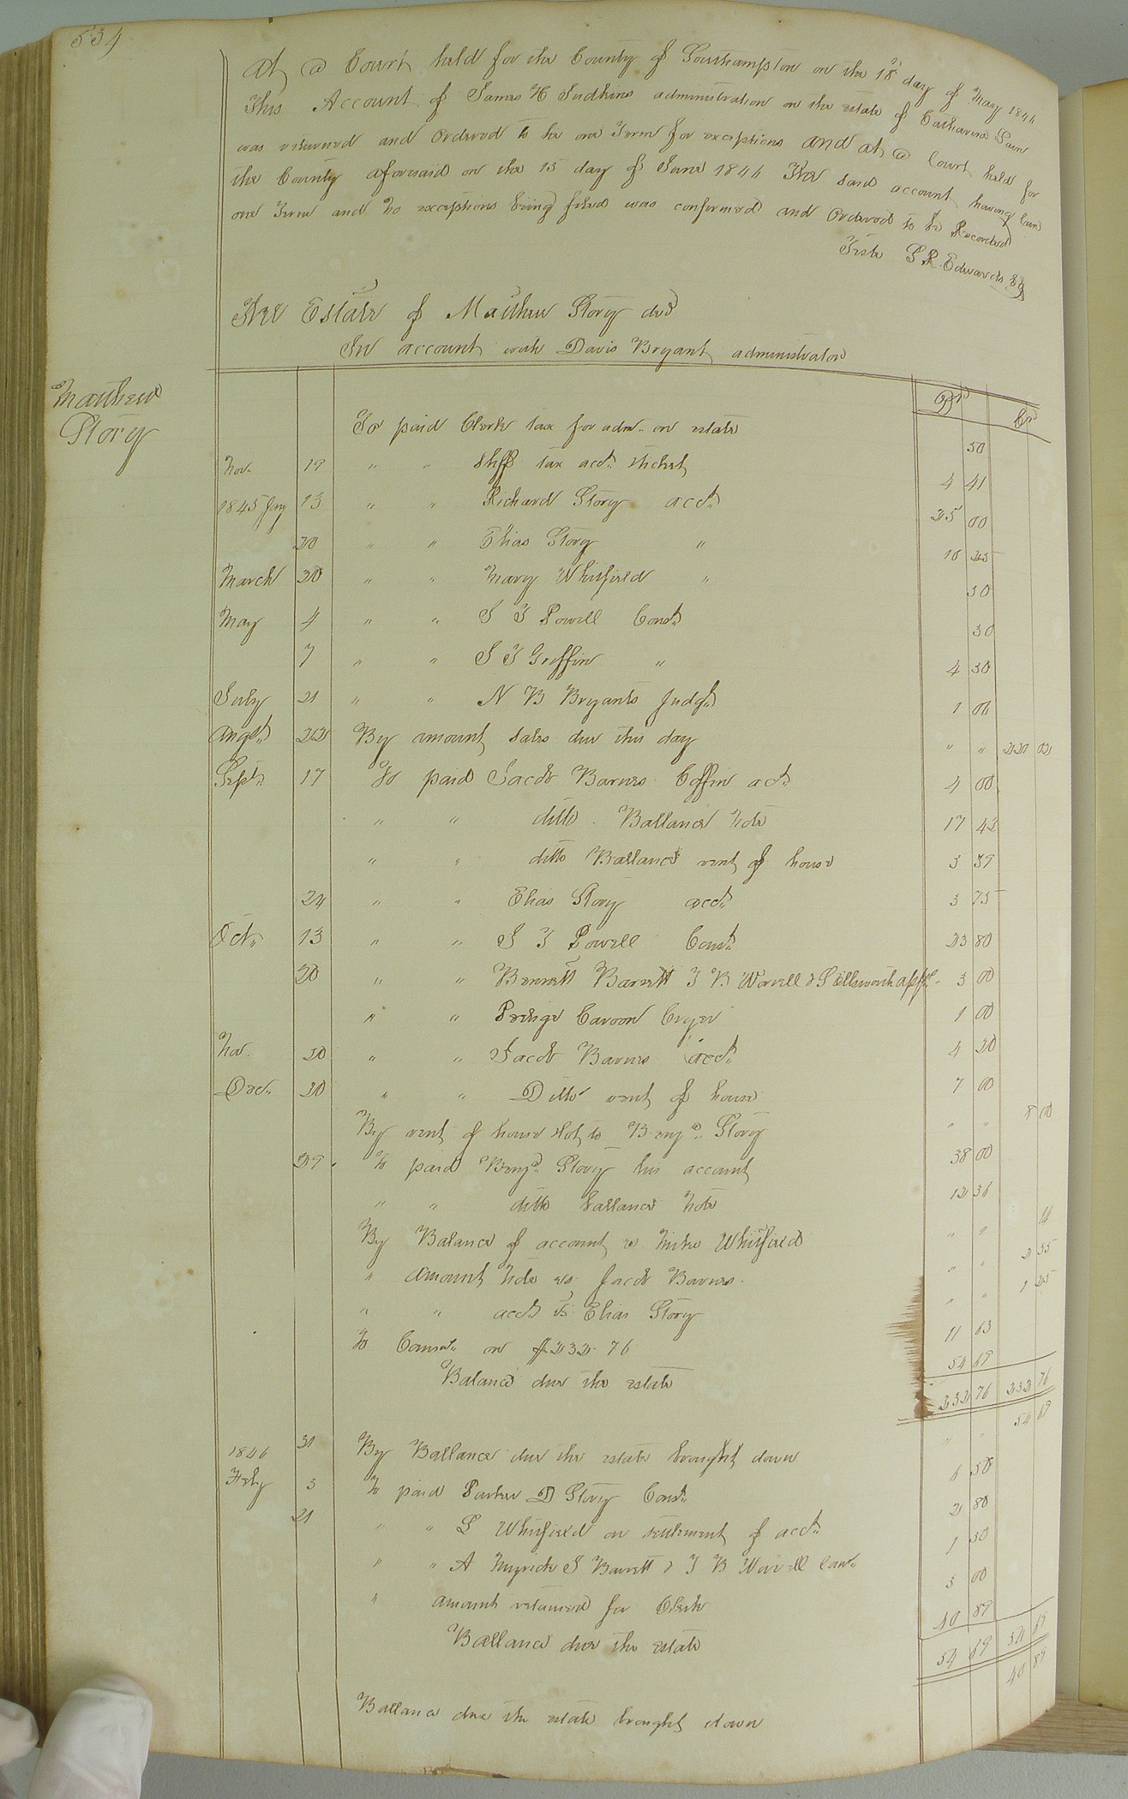 534
At a Court held for the County of Southampton on the 18 day of May 1846
This Account of James H Judkins administration on the estate of Catharine
was returned and Ordered to lie one Term for exceptions and at a Court held for
the County aforesaid on the 15 day of June 1846 The said account having lain
one Term and no exceptions being filed was confirmed and Ordered to be Recorded
Teste L R Edwards
The Estate of Matthew Story decd
In account with Davis Bryant administrator
Matthew
Story
Dr Cr
To paid Clerk tax for adm. on estate 50
Nov. 19 " " Shff tax acct. ticket 4 41
1845 Jany 13 " " Richard Story acct. 25 00
20 " " Elias Story " 10 25
March 20 " " Mary Whitfield " 50
May 4 " " J T Powell Const. 30
7 " " J T Griffin " 4 30
July 21 " " N B Bryants Judgt. 1 06
Augt. 22 By amount sales due this day " " 220
Sept. 17 To paid Jacob Barnes Coffin act. 4 00
" " ditto Ballance note 17 42
" " ditto Ballance rent of house 3 39
24 " " Elias Story acct. 3 75
Oct. 13 " " J T Powell Const. 23 80
20 " " Bennett Barrett T B Worrell & 3 00
" " Caroon Cryer 1 00
Nov. 20 " " Jacob Barnes acct. 4 20
Dec. 20 " " Ditto rent of house 7 00
By rent of house & lot to Benja. Story " " 8 00
29 To paid Benja. Story his account 38 00
" " ditto ballance note 12 36
By Balance of account vs Whitfield " "
" amount note vs Jacob Barnes " " 2 35
" " acct. vs. Elias Story " " 1 25
To Comsn. on $232.76 11 63
Balance due the estate 54 69
232 76 232 76
31 By Ballance due the estate brought down " " 54 69
1846
Feby 3 To paid Parker D Story Const. 6 50
21 " " L Whitfield on settlement of acct. 2 80
" " A Myrick J Barrett & T B Worrell 1 50
" amount retained for Clerk 3 00
Ballance due the estate 40 89
54 69 54 69
Ballance due the estate brought down 40 89